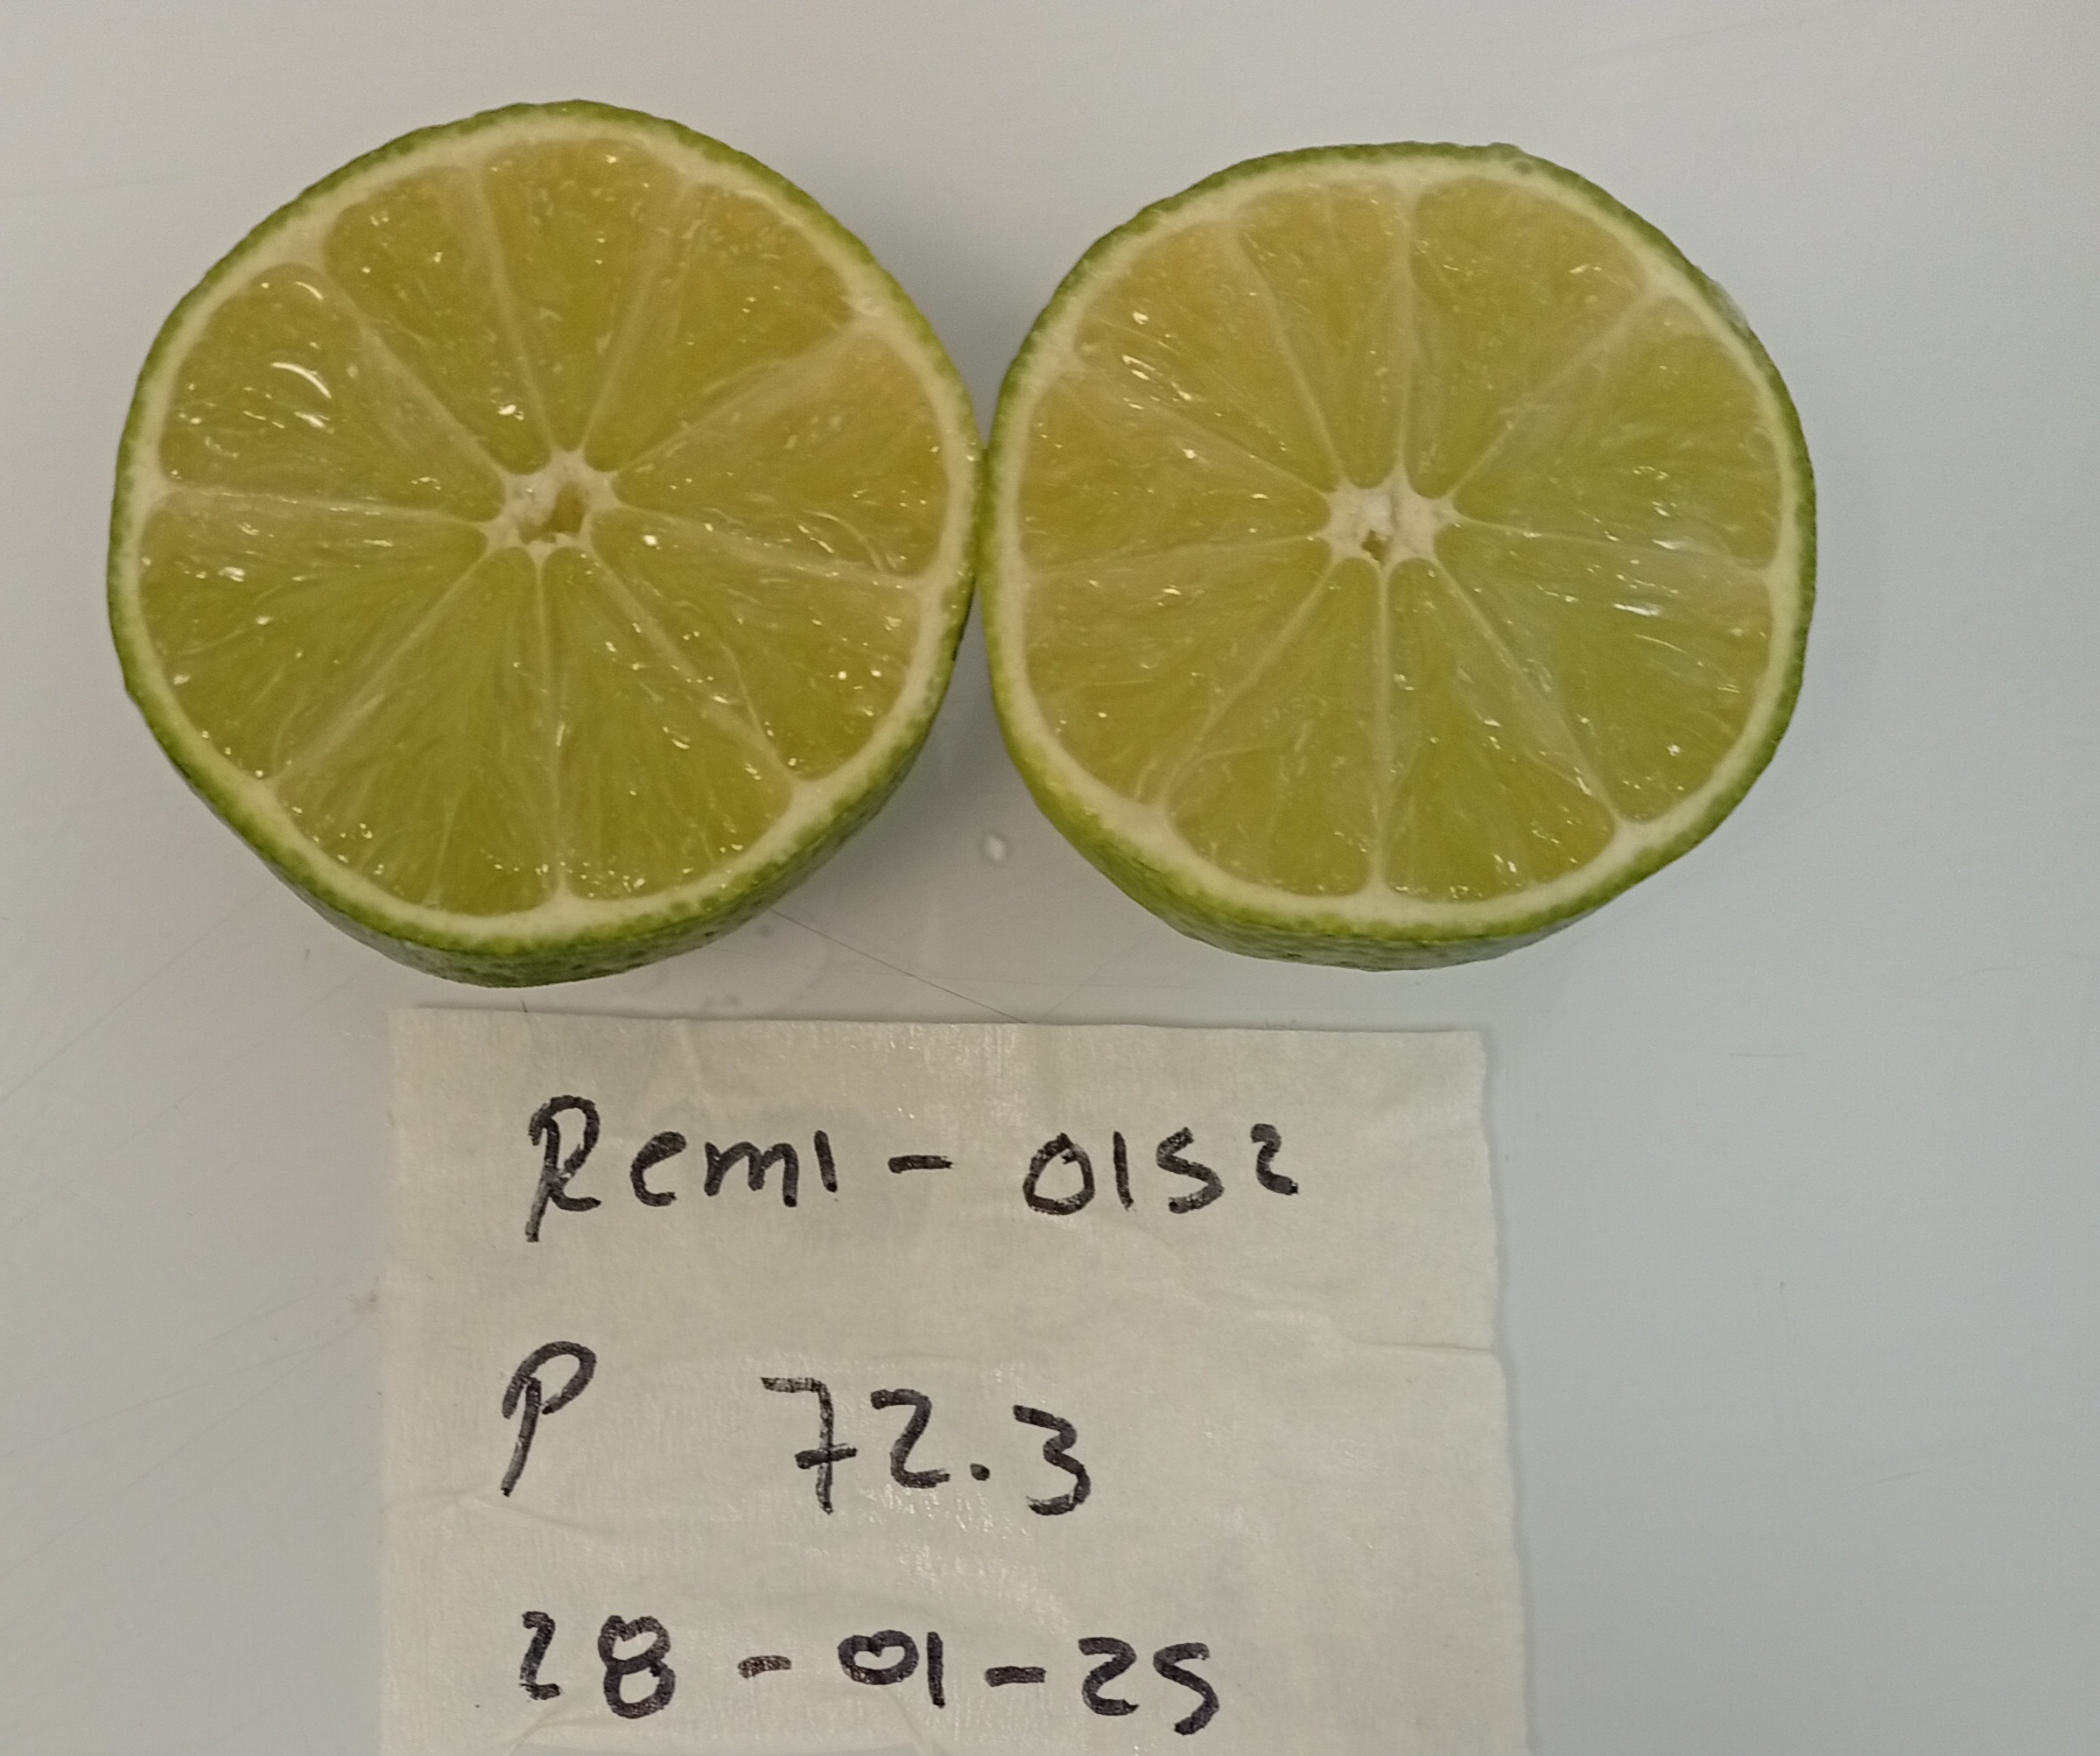 Remi - 0152
P 72.3
28 - 01 - 25